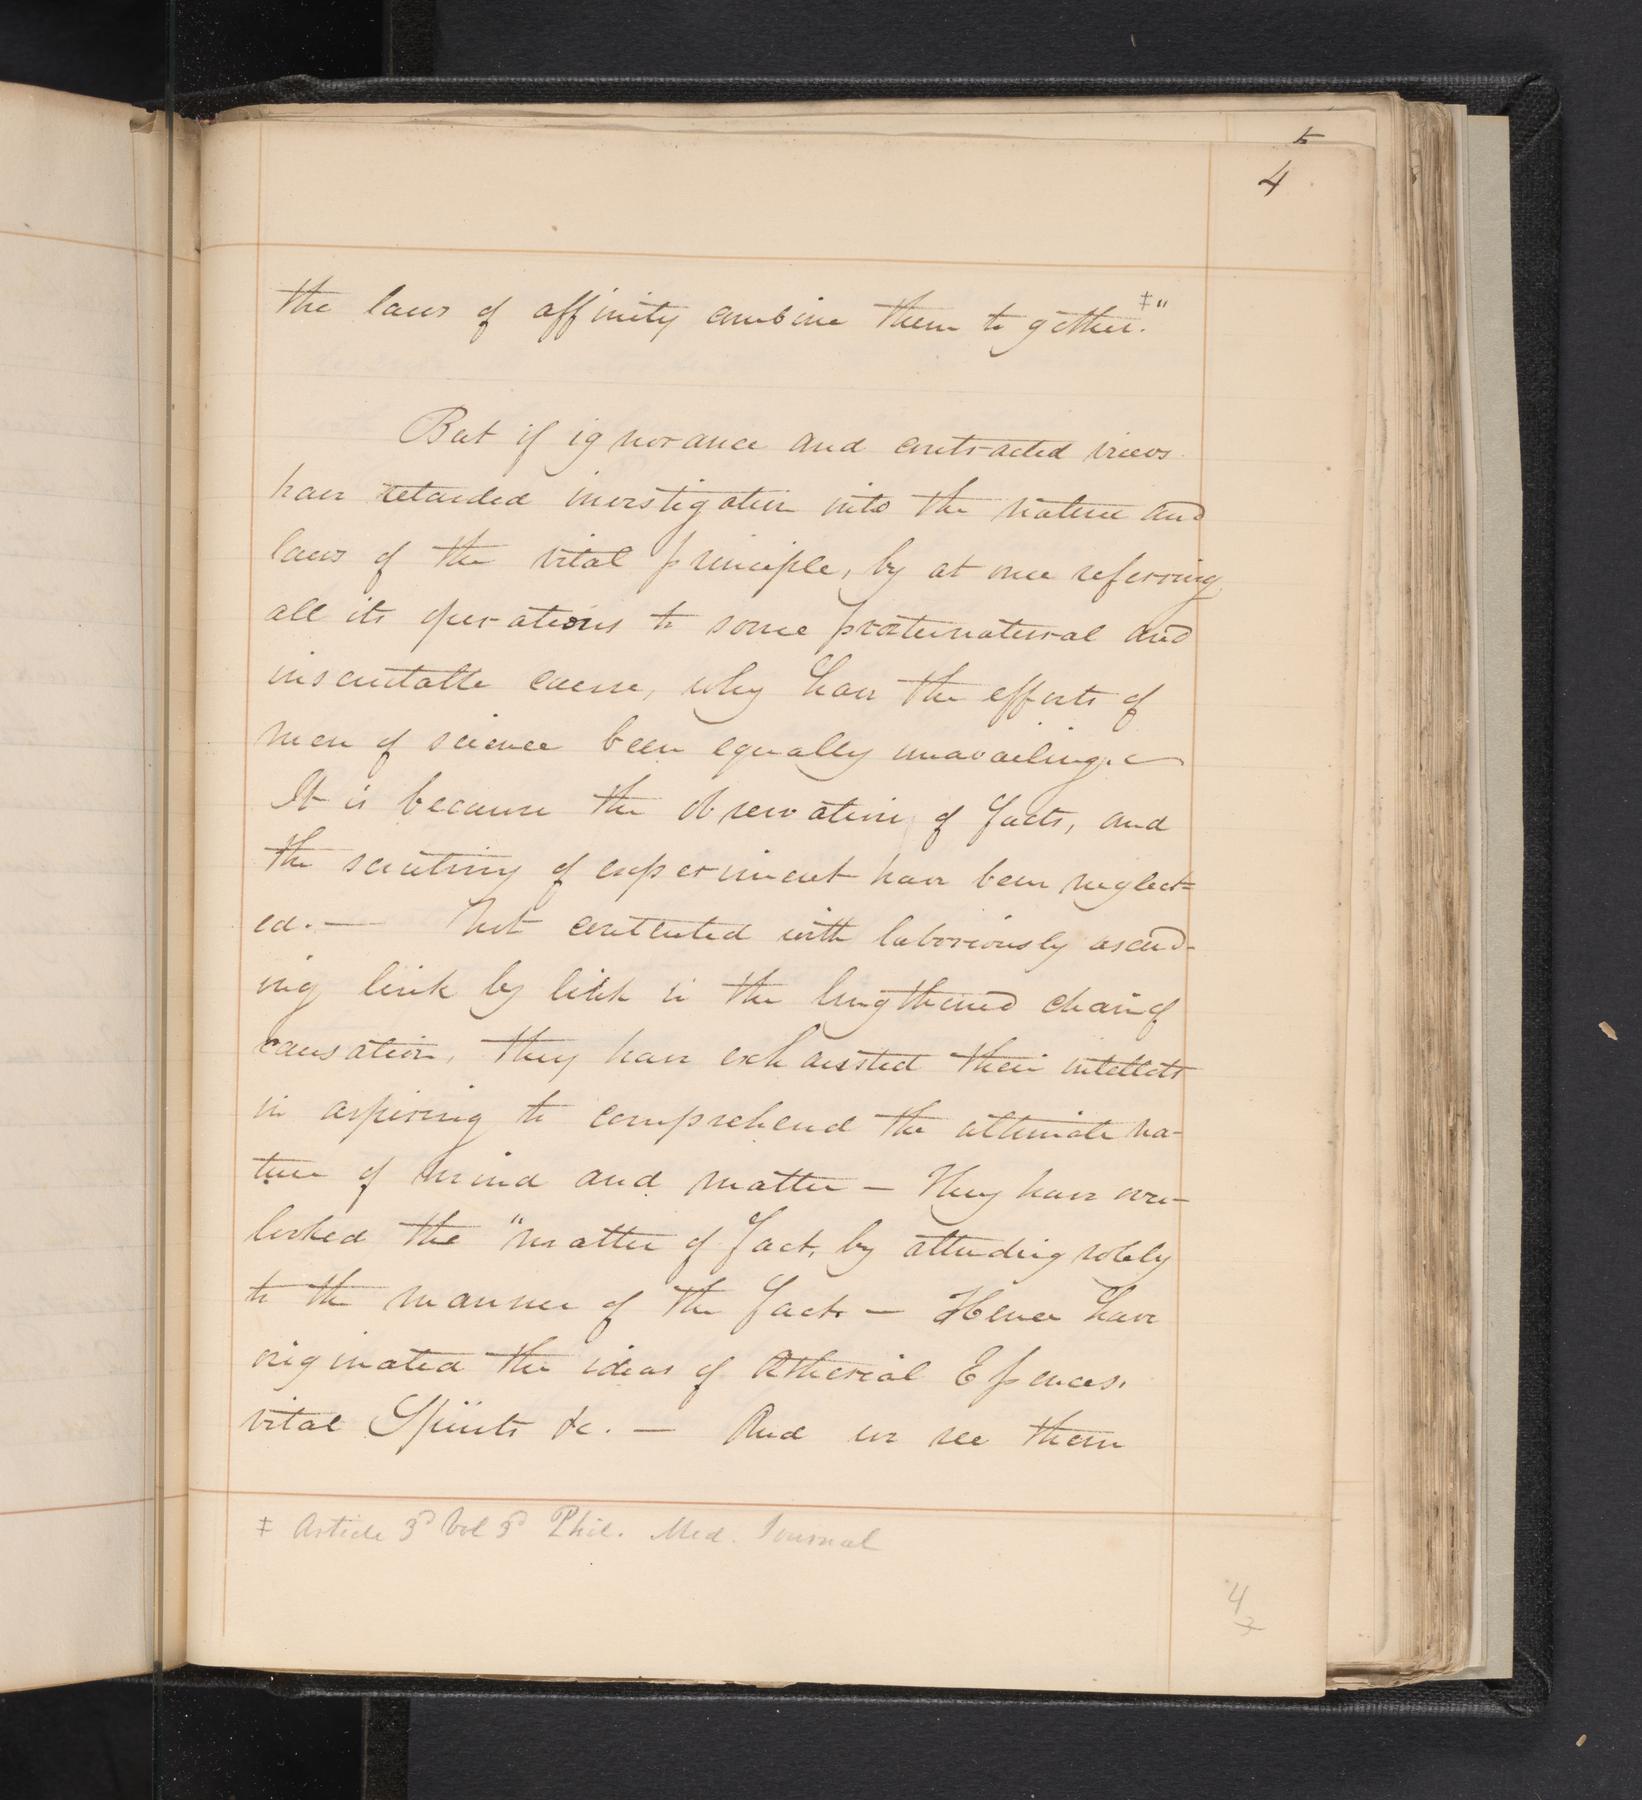 5
4
the laws of affinity combine them to gether.‡"
But if ignorance and contracted views
have retarded investigation into the nature and
laws of the vital principle, by at once referring
all its operations to some preternatural and
inscrutable cause, why have the efforts of
men of science been equally unavailing. —
It is because the observation of facts, and
the scrutiny of experiment have been neglect=
ed. — Not contented with laboriously ascend-
ing link by link in the lengthened chain of
causation, they have exhausted their intellects
in aspiring to comprehend the ultimate na-
ture of mind and matter — They have over-
looked the "matter of fact, by attending solely
to the manner of the fact. — Hence have
originated the ideas of Etherial Essences,
vital Spirits &c. — And we see them
‡ Article 3d Vol 3d Phil. Med. Journal
4